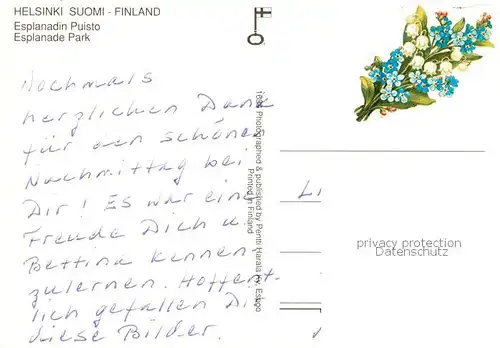 HELSINKI SUOMI - FINLAND
Esplanadin Puisto
Esplanade Park
Nochmals
herzlichen Dank
für den schönen
Nachmittag bei
Dir! Es war eine
Freude Dich u.
Bettina kennen-
zulernen. Hoffent-
lich gefallen Dir
diese Bilder.
Photographed & published by Pentti Harala Ky, Espoo
Printed in Finland
Li
privacy protection
Datenschutz